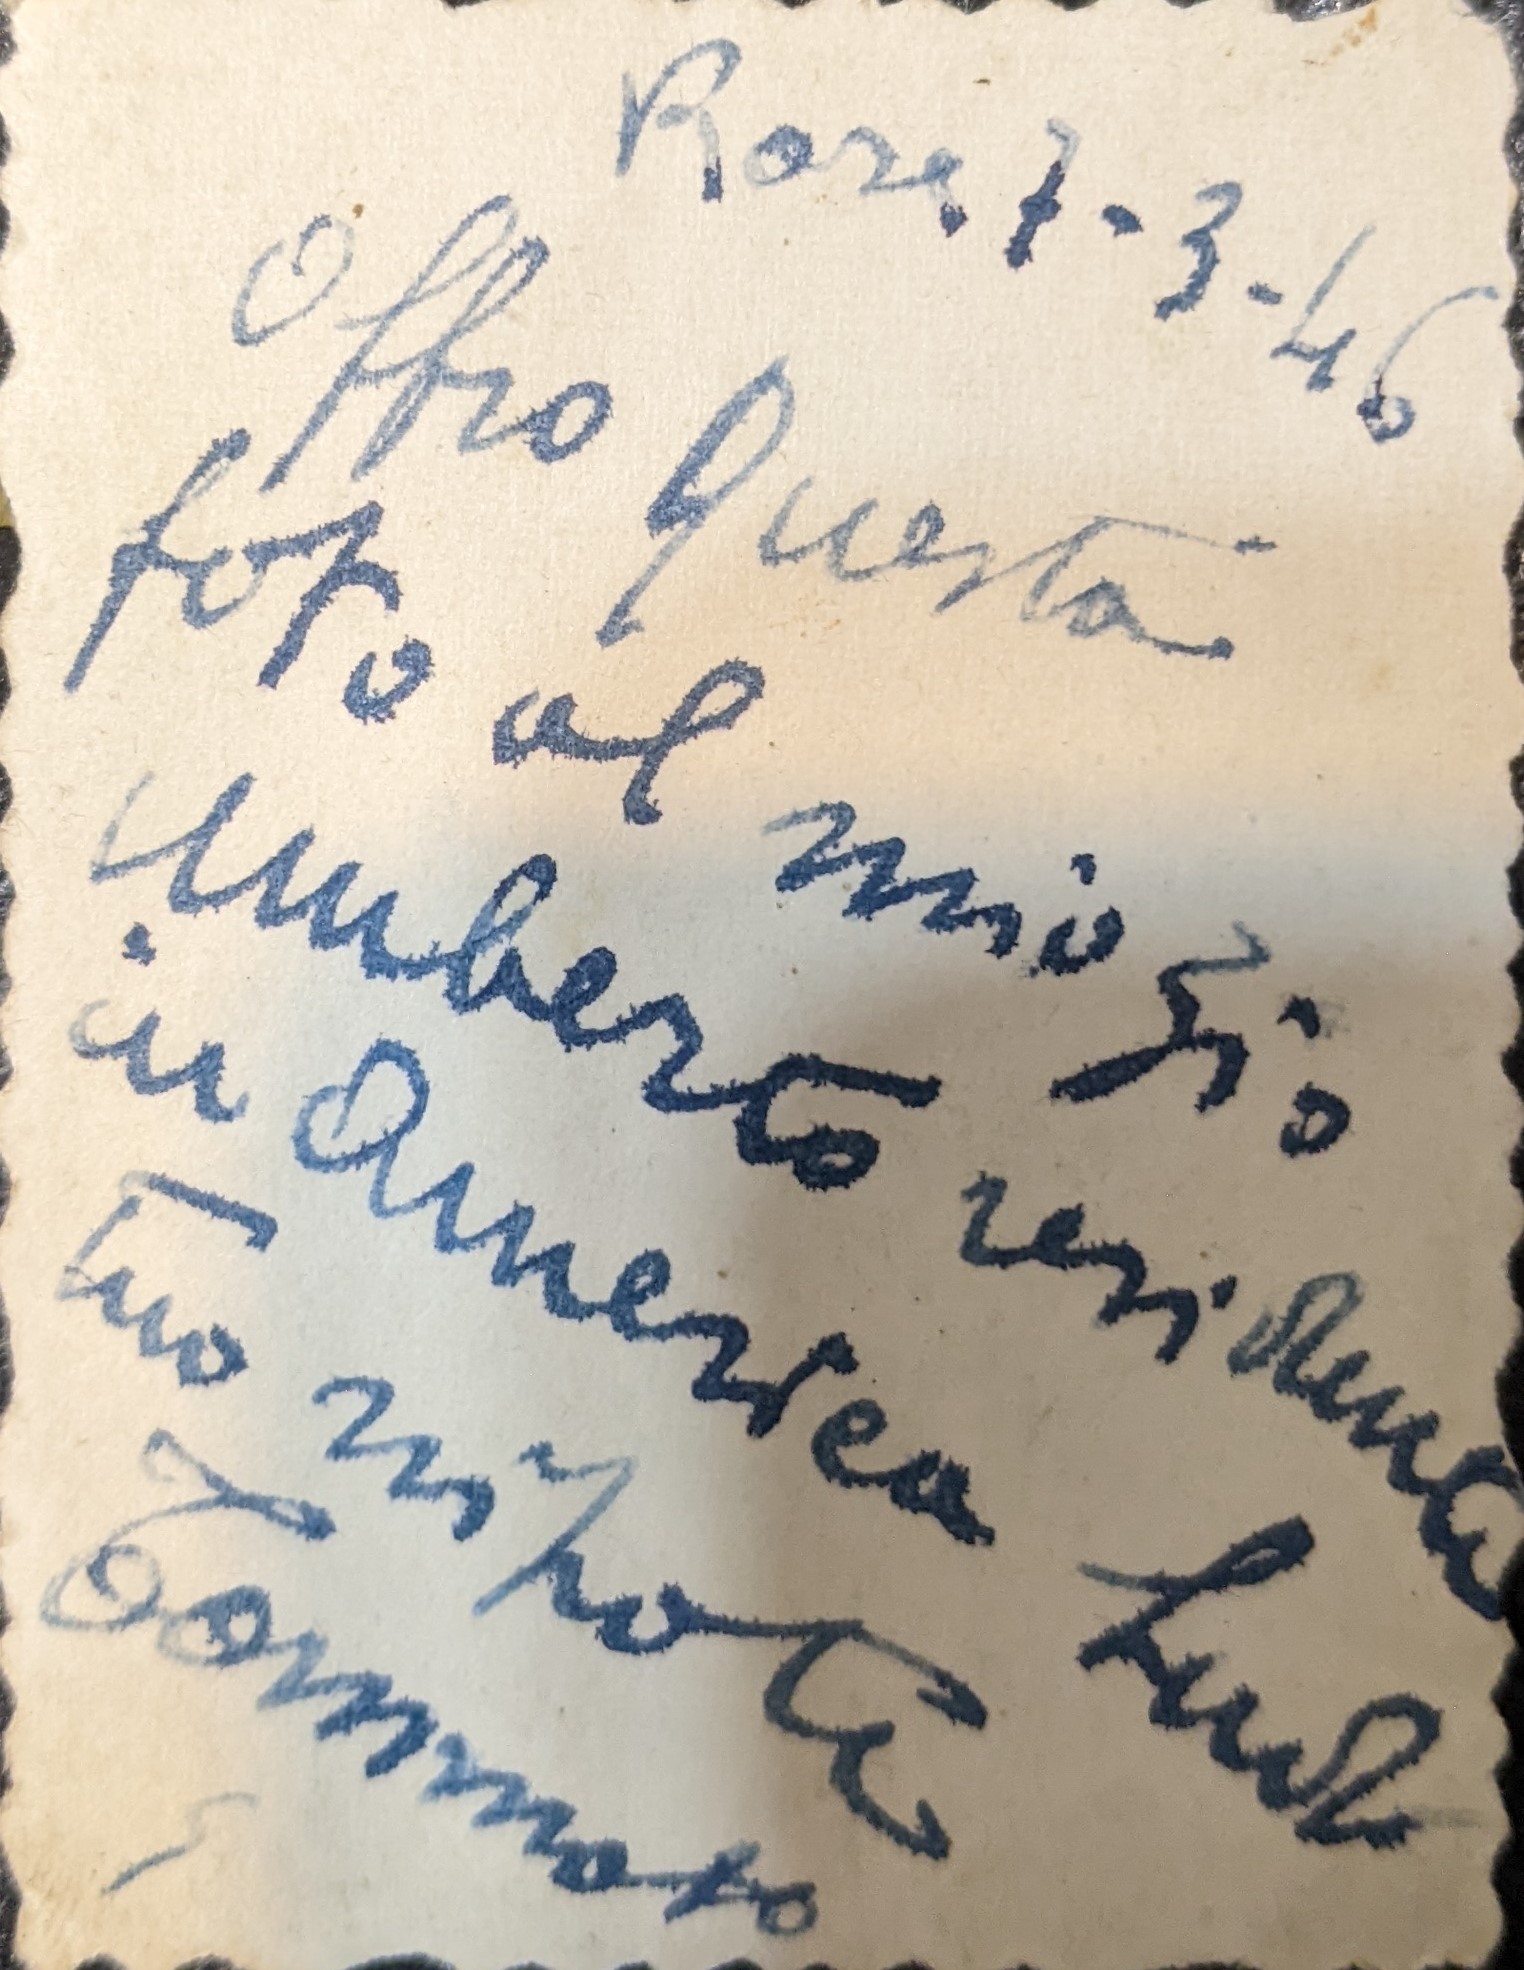 Rose, 7-3-46
Offro questa
foto al mio zio
Umberto residente
in America
tuo nipote
Tommaso